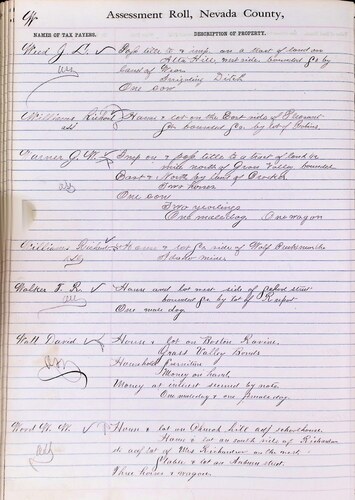 W
Assessment Roll, Nevada County,
NAMES OF TAX PAYERS.
DESCRIPTION OF PROPERTY.
Weed J. L. Poss title to & imp. on a tract of land on
Alta Hill, west side, bounded &c by
land of
Ditch
One cow
Williams Richard House & lot on the East side of Pleasant
bounded &c. by lot of
Turner G. W. Imp on & poss title to a tract of land
north of Grass Valley bounded
East & North by land of Crocker
Two horses
One cow
Two yearlings
One male dog One wagon
Williams House & lot side of Wolf
Idaho mine
Walker T. R. House and lot west side of School street
bounded &c by lot of
One male dog
Watt David House & lot on Boston Ravine,
Grass Valley Bonds
Household furniture
Money on hand
Money at interest secured by note
One male dog & one female dog
Wood W. W. House & lot on Church hill adj schoolhouse
House & lot on south side of Richardson
do adj lot of Mrs Richardson on the west
Stable & lot on Auburn street
Three horses & wagons